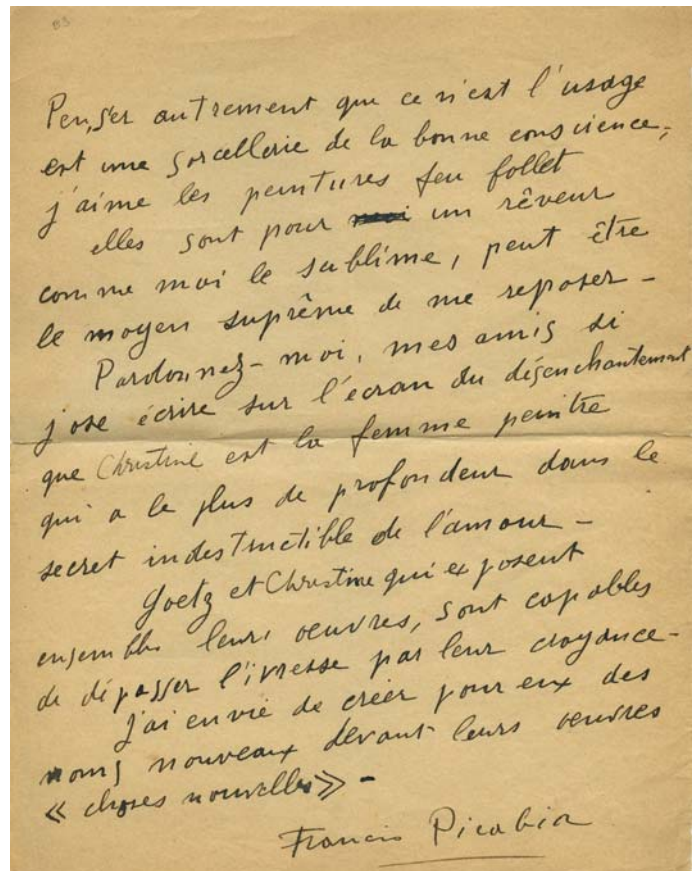 83
Penser autrement que ce n'est l'usage
est une sorcellerie de la bonne conscience,
j'aime les peintures feu follet
elles sont pour moi un rêveur
comme moi le sublime, peut être
le moyen suprême de me reposer -
Pardonnez-moi, mes amis si
j'ose écrire sur l'écran du désenchantement
que Christine est la femme peintre
qui a le plus de profondeur dans le
secret indestructible de l'amour -
Goetz et Christine qui exposent
ensembles leurs oeuvres, sont capables
de dépasser l'ivresse par leur croyance -
j'ai envie de créer pour eux des
noms nouveaux devant leurs oeuvres
« choses nouvelles » -
Francis Picabia